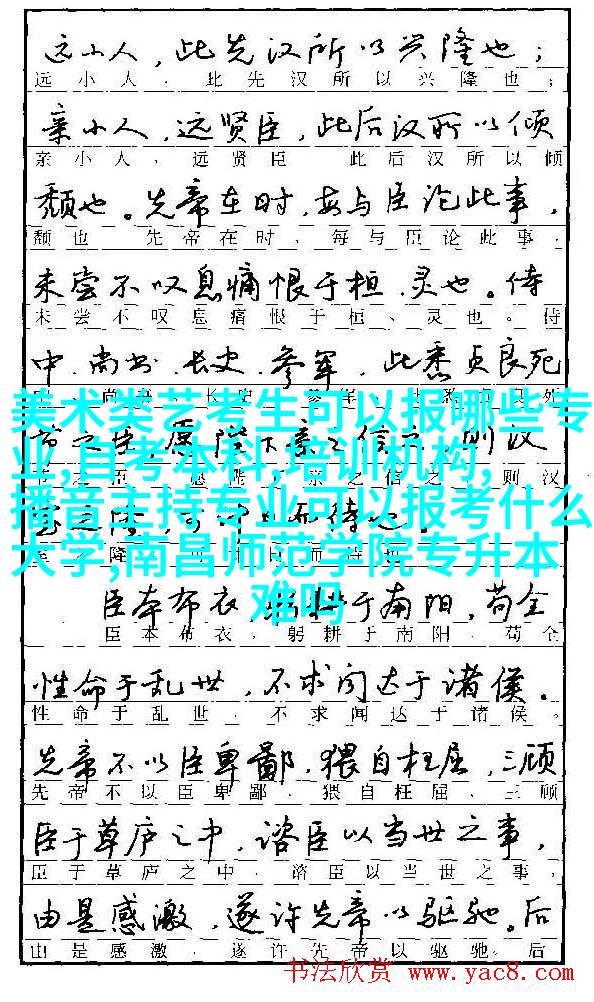 远小人，此先汉所以兴隆也；
远小人，此先汉所以兴隆也；
亲小人，远贤臣，此后汉所以倾
亲小人，远贤臣 此后汉所以倾
颓也。先帝在时，每与臣论此事，
颓也 先帝在时，每与臣论此事，
未尝不叹息痛恨于桓、灵也。侍
未尝不叹息痛恨于桓、灵也。侍
中、尚书、长史、参军，此悉贞良死
美术类艺考生可以报哪些专
业,自考本科,培训机构,
播音主持专业可以报考什么
大学,南昌师范学院专升本
难吗
臣本布衣，躬耕于南阳，苟全
臣本布衣，躬耕于南阳，苟全
性命于乱世，不求闻达于诸侯。
性命于乱世，不求闻达于诸侯。
先帝不以臣卑鄙，猥自枉屈，三顾
先帝不以臣卑鄙，猥自枉屈，三顾
臣于草庐之中，谘臣以当世之事，
臣于草庐之中，谘臣以当世之事，
由是感激，遂许先帝以驱驰。后
由是感激，遂许先帝以驱驰。后
书法欣赏 www.yac8.com